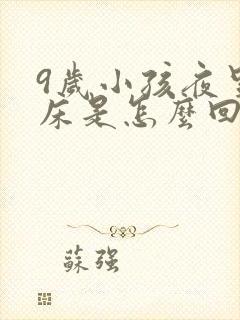 9歲小孩夜
床是怎麼回
蘇強